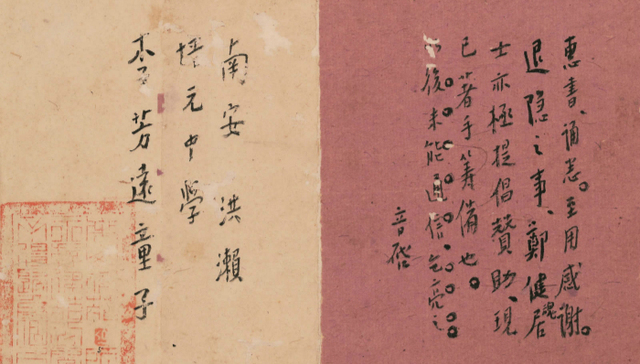 惠書、誦悉。至用感謝。
退隱之事、鄭健魂居
士亦極提倡贊助、現
已著手籌備也。
後未能通信、乞亮之
音啓
南安 洪瀨
培元中學
李芳遠童子